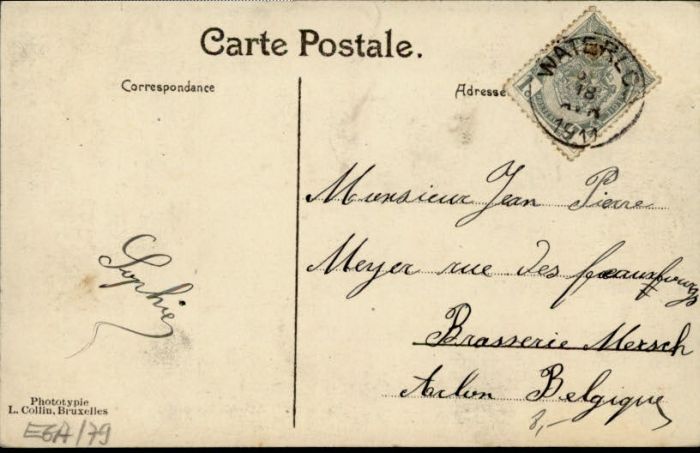 Carte Postale.
Correspondance
Adresse
WATERLO
18
1911
1
Monsieur Jean Pierre
Meyer rue des feauxbourgs
Brasserie Mersch
Arlon Belgique
Sophie
3,-
Phototypie
L. Collin, Bruxelles
E6A/79